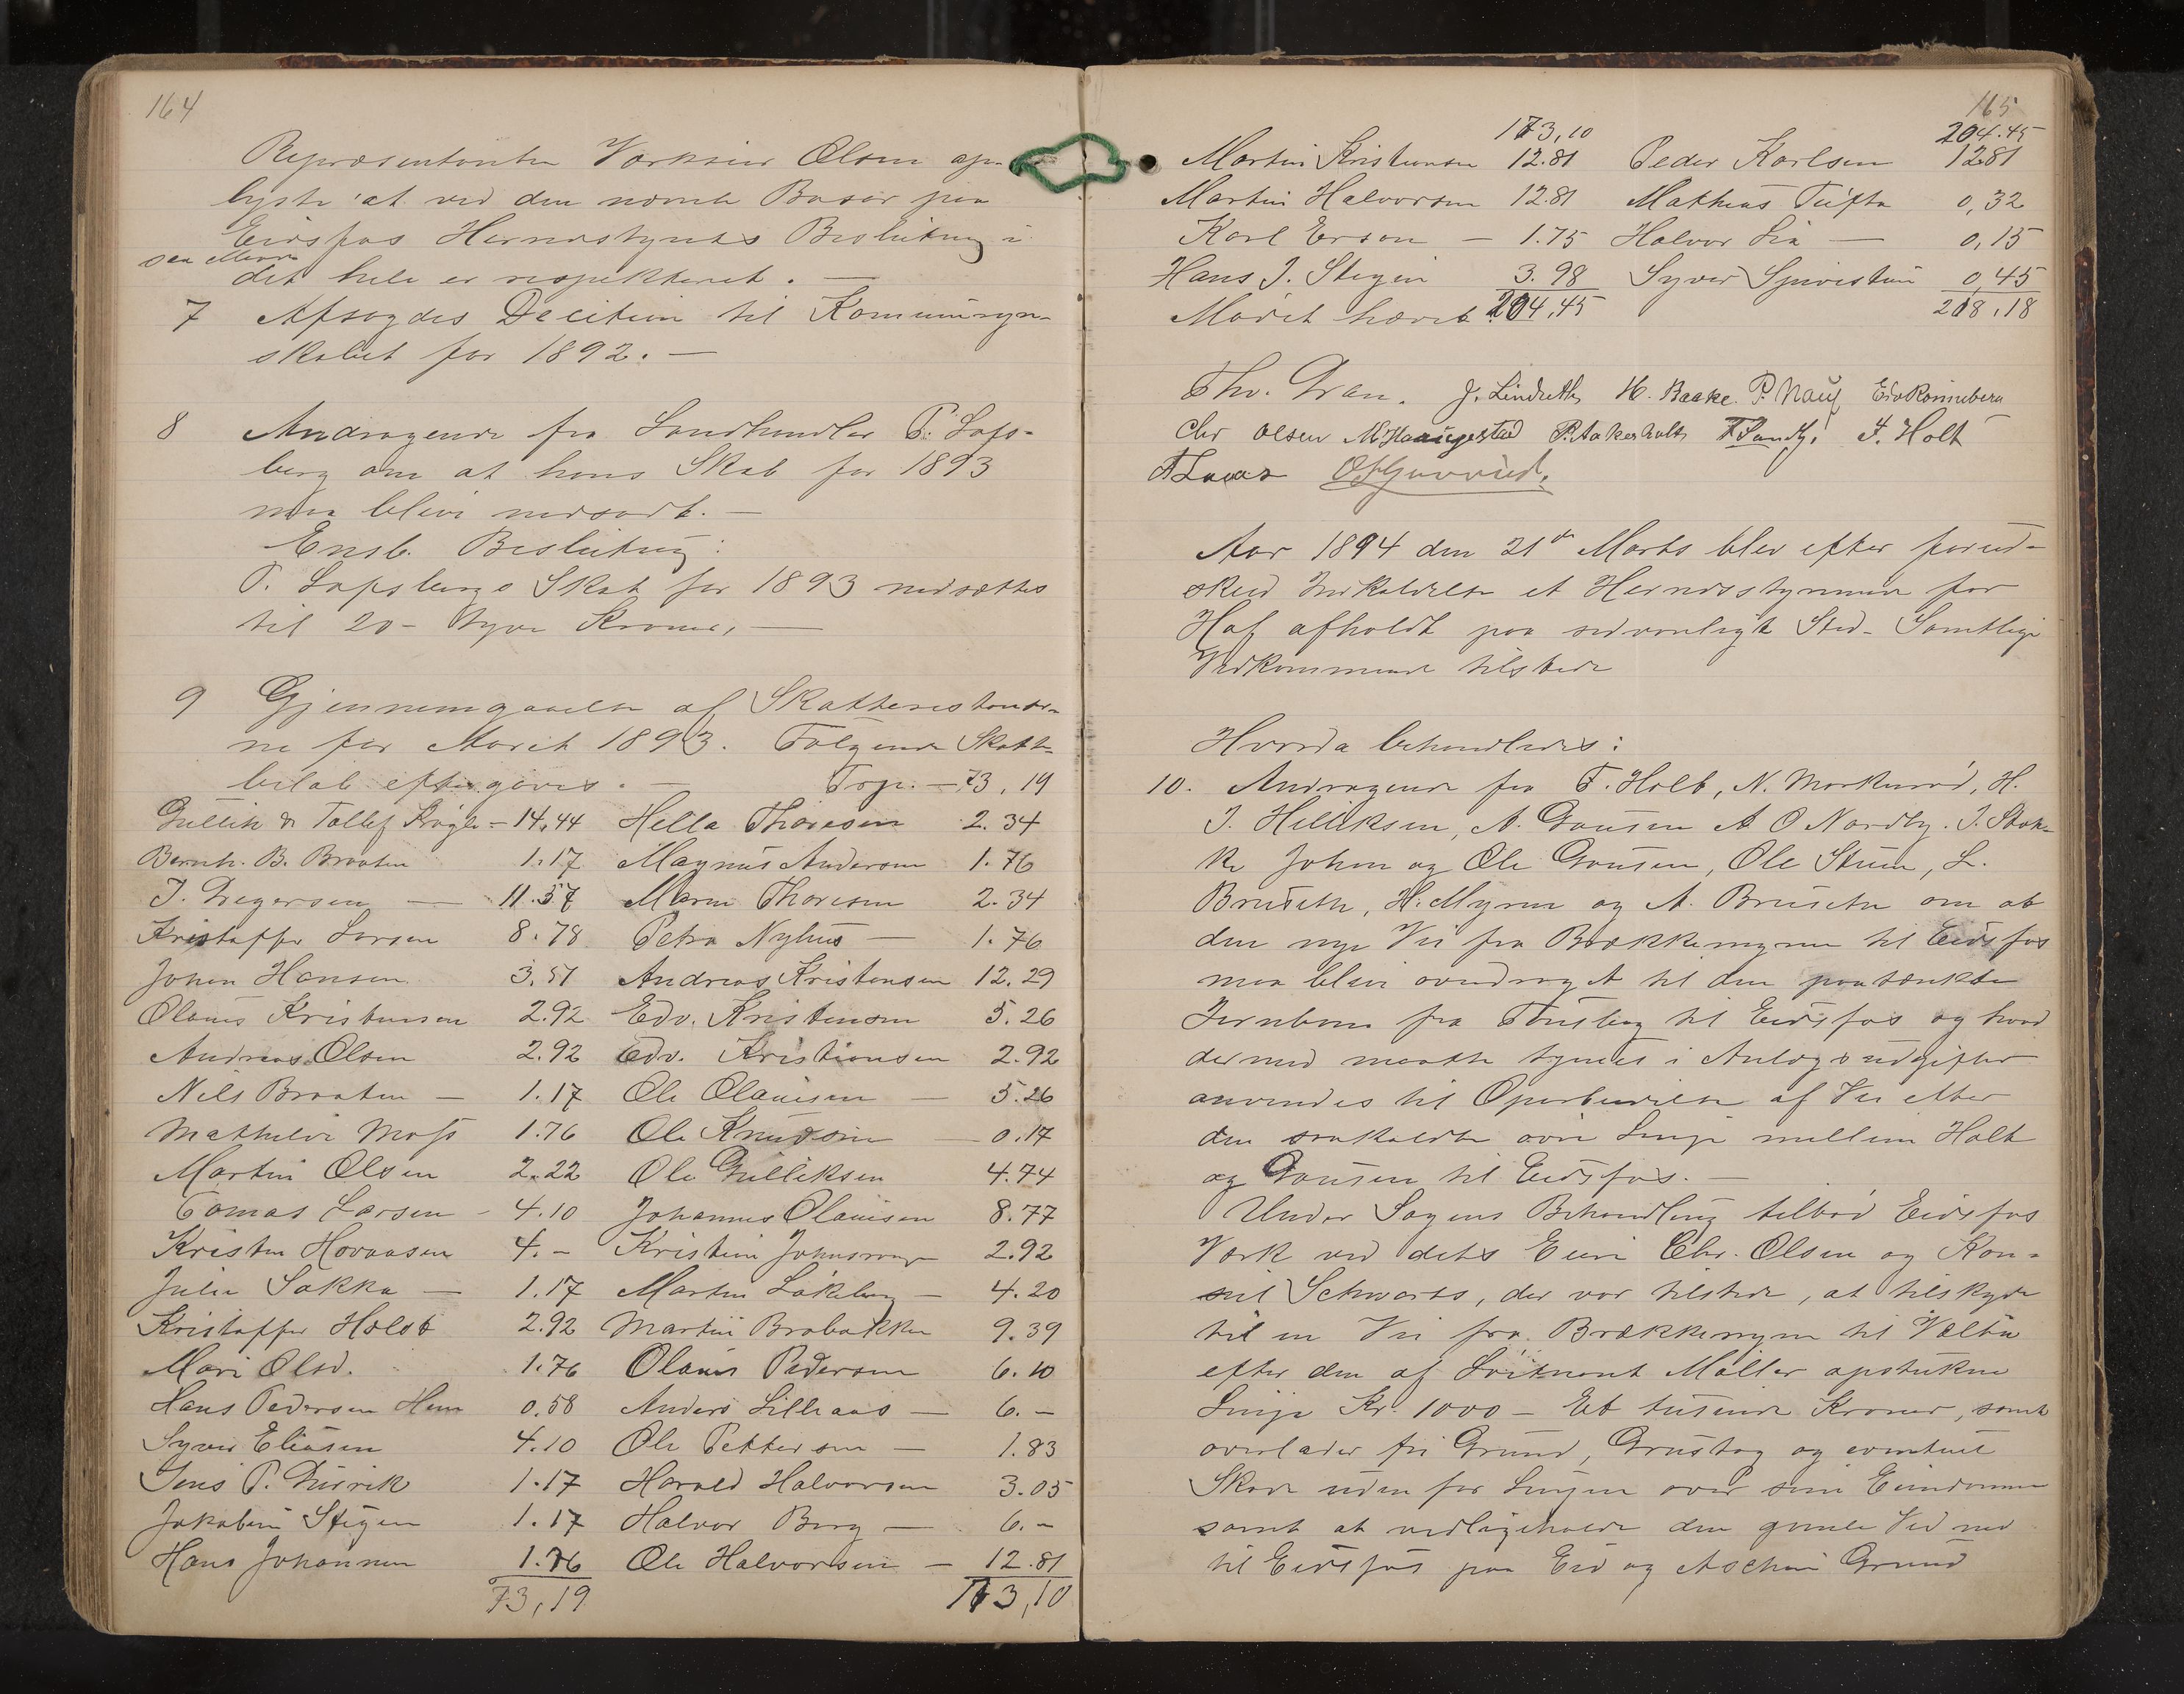 164
Repræsentanten Værkseier Olsen op-
lyste at ved den nævnte Basar paa
Eidsfos Herredsstyrets Beslutning i
det hele er respekteret. —
7 Afsagdes Decition til Komunregn-
skabet for 1892. —
8 Andragende fra Landhandler P. Lofs-
berg om at hans Skat for 1893
maa blive nedsadt. —
Enst. Beslutning:
P. Lofsbergs Skat for 1893 nedsættes
til 20 - tyve Kroner, —
9 Gjennemgaaelse af Skatterestancer-
ne for Aaret 1893. Følgende Skatte-
beløb eftergives. — Trp. — 73,19
Gullik & Tollef Krøgli - 14,44 Hella Thoresen 2.34
Bernh. B. Braaten 1.17 Magnus Andersen 1.76
J. Gregersen — 11.57 Maren Thoresen 2.34
Kristoffer Larsen 8.78 Petra Nyhus — 1.76
Johan Hansen 3,51 Andreas Kristensen 12.29
Olaus Kristensen 2.92 Edv. Kristensen 5.26
Andreas Olsen 2.92 Edv. Kristiansen 2.92
Nils Braaten — 1.17 Ole Olausen — 5.26
Mathilde Moss 1.76 Ole Knudsen — 0.17
Martin Olsen 2.22 Ole Gulliksen 4.74
Tomas Larsen - 4.10 Johannes Olausen 8.77
Kristen Hovaasen 4.- Kristine Johnsen 2.92
Julie Sakka — 1.17 Martin Løkeberg — 4.20
Kristoffer Holst 2.92 Martin Brobakken 9.39
Mari Olsd. 1.76 Olaus Pedersen 6.10
Hans Pedersen Hem 0.58 Anders Lilleaas — 6.-
Syver Eliasen 4.10 Ole Pettersen — 1.83
Jens P. 1.17 Harald Halvorsen 3.05
Jakobine Stigen 1.17 Halvor Berg — 6.-
Hans Johannesen 1.76 Ole Halvorsen — 12.81
73,19 173,10
165
173,10 204.45
Martin Kristensen 12.81 Peder Karlsen 12.81
Martin Halvorsen 12.81 Mathias Tufte 0,32
Karl Erson — 1.75 Halvor Lia — 0,15
Hans J. Stegin 3.98 Syver 0,45
Mødet hævet. 204,45 218,18
Thv. Gran. J. Lindseth H. Baake. P. Nauf
Chr Olsen M. Haugestad P. Aakesholt F. Sandby. F. Holt
Aar 1894 den 21de Marts blev efter forud-
skeed Indkaldelse et Herredsstyremøde for
Hof afholdt paa sedvanligt Sted - Samtlige
Vedkommende tilstede
Hvorda behandledes:
10. Andragende fra F. Holt, N. Morkerød, H.
J. Hilliksen, A. Gausen A O Nordby. J. Stok-
ke Johan og Ole Gausen, Ole Steen, L.
Bruseth, H. Myren og A. Bruseth om at
den nye Vei fra Brækkemyren til Eidsfos
maa blive anderdraget til den paatænkte
Jernbane fra Tønsberg til Eidsfos og hvad
dermed maatte i Anlægsudgifter
anvendes til Oparbeidelse af Vei efter
den saakaldte øvre Linje mellem Holt
og Gausen til Eidsfos. —
Under Sagens Behandling tilbød Eidsfos
Værk ved dets Eiere Chr. Olsen og Kon-
sul Schwarts, der var tilstede, at tilskyde
til en Vei fra Brækkemyren til
efter den af Løitnant Møller opstukne
Linje Kr. 1000 - Et tusinde Kroner, samt
overlader fri Grund, Grustag og eventuel
Skade uden for Linjen over sine Eiendomme
samt at vedligeholde den gamle Vei ned
til Eidsfos paa Eid og Grund